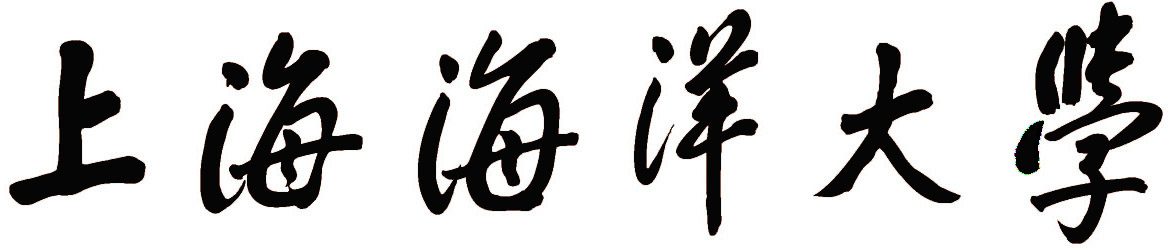 上海海洋大学